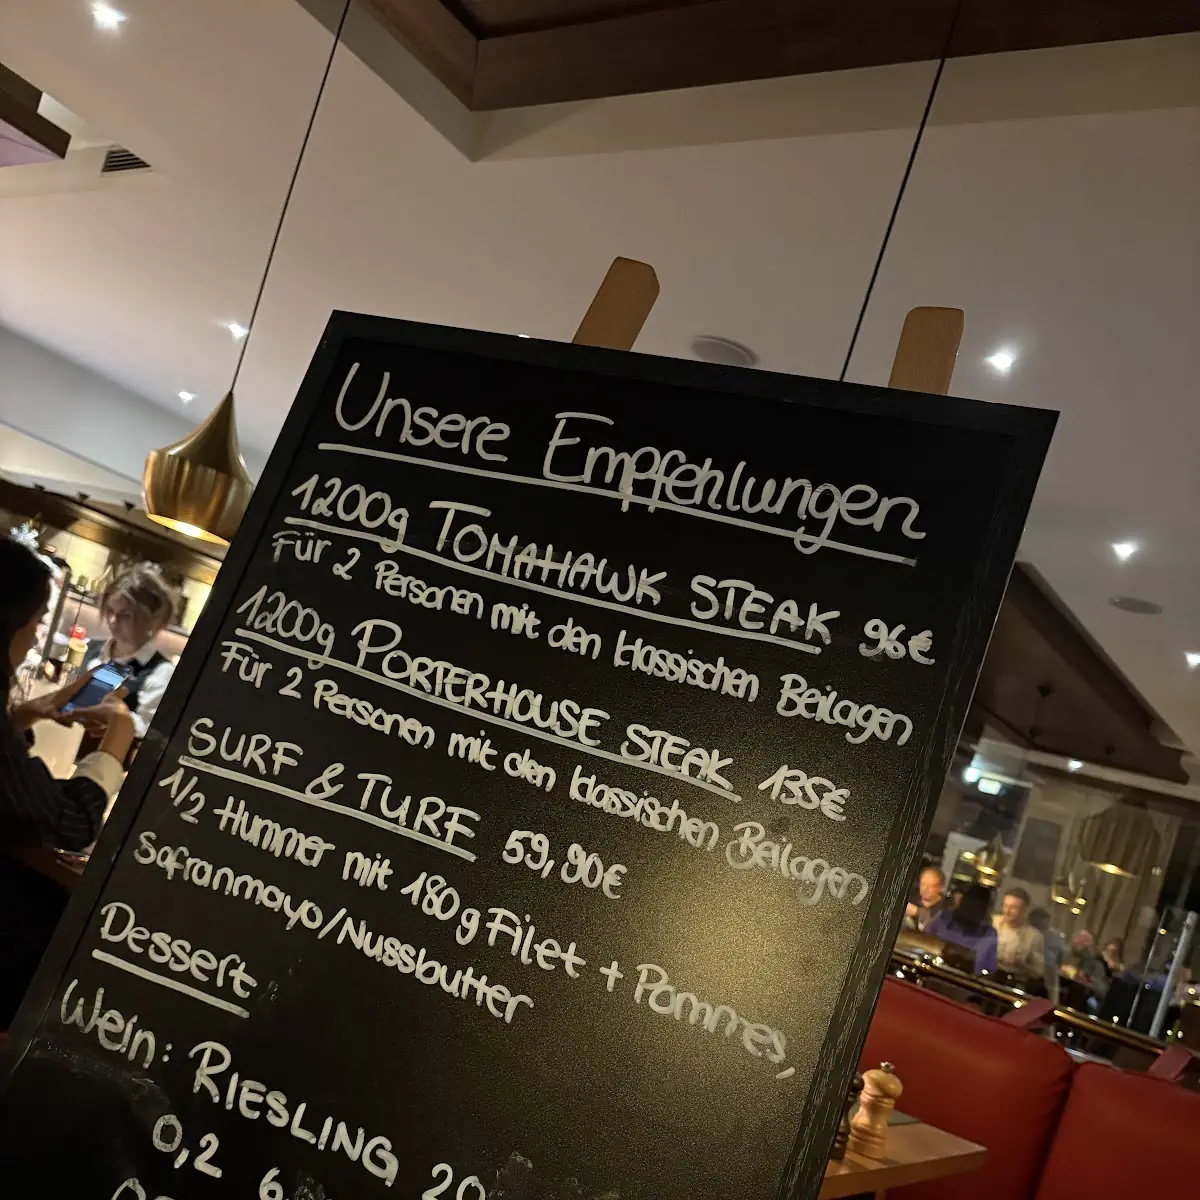 Unsere Empfehlungen
1200g TOMAHAWK STEAK 96€
Für 2 Personen mit den klassischen Beilagen
1200g PORTERHOUSE STEAK 135€
Für 2 Personen mit den klassischen Beilagen
SURF & TURF 59,90€
1/2 Hummer mit 180g Filet + Pommes,
Safranmayo/Nussbutter
Dessert
Wein: RIESLING 20
0,2 6,